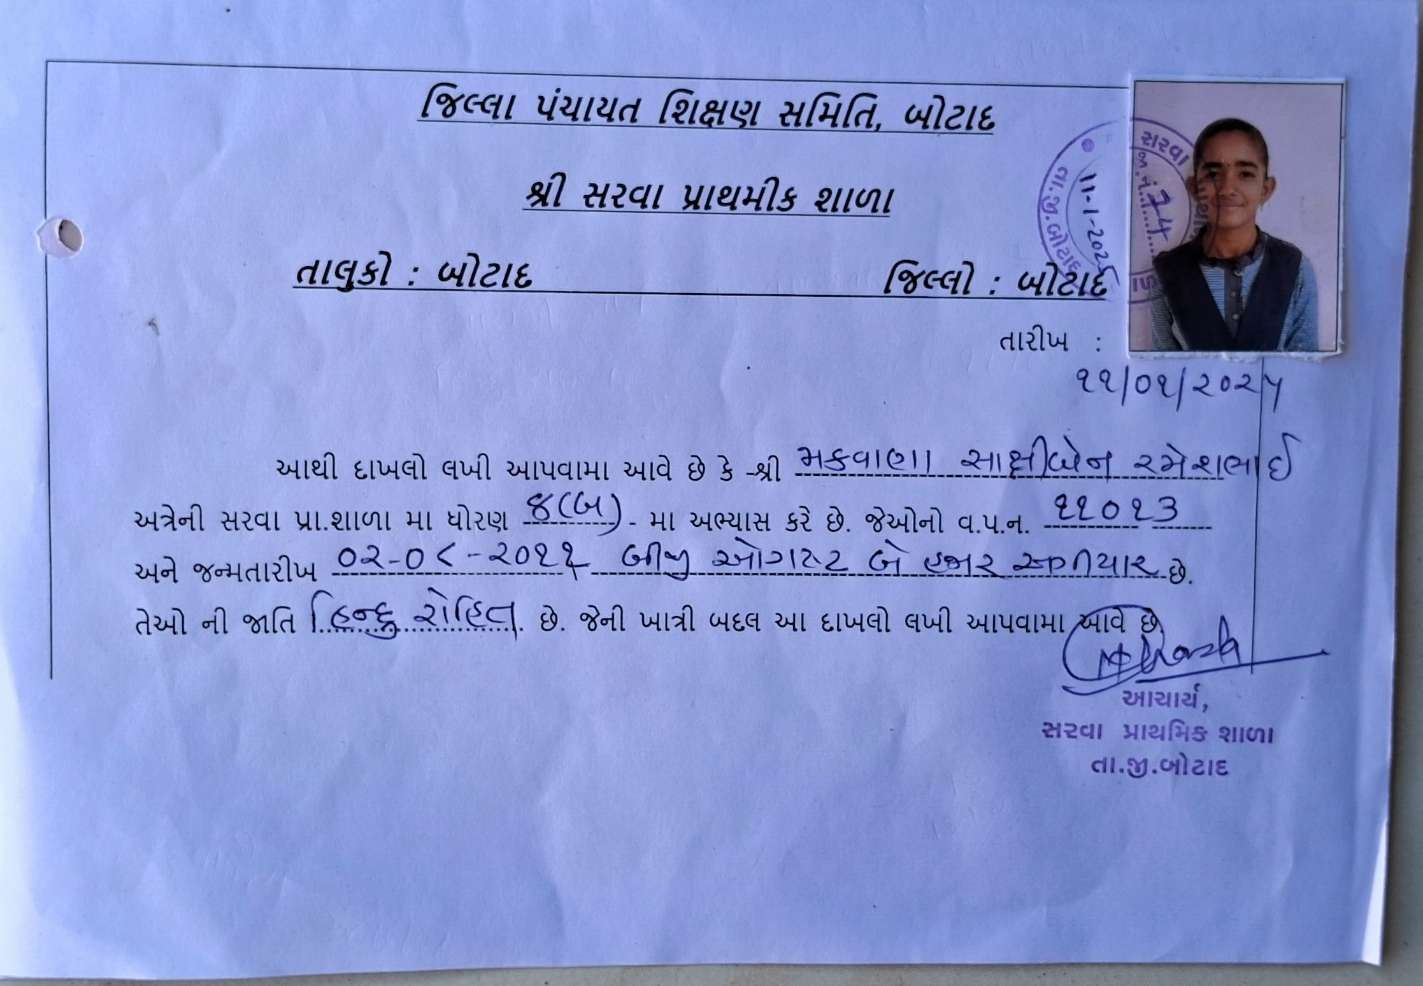 જિલ્લા પંચાયત શિક્ષણ સમિતિ, બોટાદ
શ્રી સરવા પ્રાથમીક શાળા
તાલુકો : બોટાદ જિલ્લો : બોટાદ
સરવા
જા.નં. 74
11-1-2025
તા.જી.બોટાદ
તારીખ :
૧૧/૦૧/૨૦૨૫
આથી દાખલો લખી આપવામા આવે છે કે -શ્રી મકવાણા સાક્ષીબેન રમેશભાઈ
અત્રેની સરવા પ્રા.શાળા મા ધોરણ ૪(બ) - મા અભ્યાસ કરે છે. જેઓનો વ.પ.ન. ૧૧૦૧૩
અને જન્મતારીખ ૦૨-૦૮-૨૦૧૧ બીજી ઓગસ્ટ બે હજાર અગીયાર છે.
તેઓ ની જાતિ હિન્દુ રોહિત છે. જેની ખાત્રી બદલ આ દાખલો લખી આપવામા આવે છે
આચાર્ય,
સરવા પ્રાથમિક શાળા
તા.જી.બોટાદ